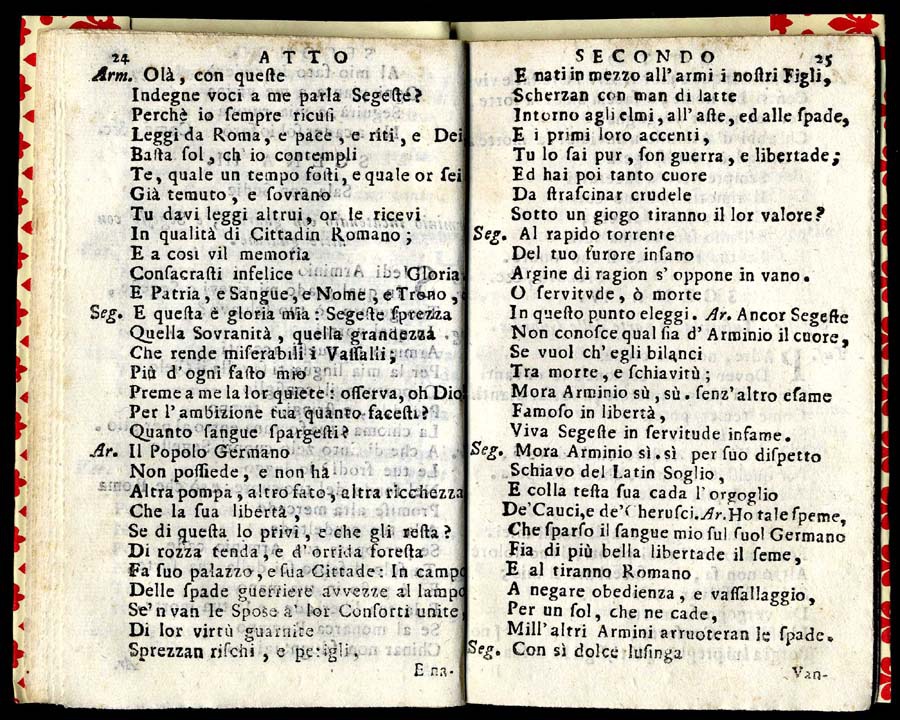 24 ATTO
Arm. Olà, con queſte
Indegne voci a me parla Segeſte?
Perchè io ſempre ricuſi
Leggi da Roma, e pace, e riti, e Dei
Baſta ſol, ch' io contempli
Te, quale un tempo foſti, e quale or ſei
Già temuto, e ſovrano
Tu davi leggi altrui, or le ricevi
In qualità di Cittadin Romano;
E a così vil memoria
Conſacraſti infelice Gloria,
E Patria, e Sangue, e Nome, e Trono,
Seg. E queſta è gloria mia: Segeſte ſprezza
Quella Sovranità, quella grandezza
Che rende miſerabili i Vaſſalli;
Più d'ogni faſto mio
Preme a me la lor quiete: oſſerva, oh Dio
Per l'ambizione tua quanto faceſti?
Quanto ſangue ſpargeſti?
Ar. Il Popolo Germano
Non poſſiede, e non hà
Altra pompa, altro faſto, altra ricchezza
Che la ſua libertà,
Se di queſta lo privi, e che gli reſta?
Di rozza tenda, e d'orrida foreſta
Fa ſuo palazzo, e ſua Cittade: In campo
Delle ſpade guerriere avvezze al lampo
Se'n van le Spoſe a' lor Conſorti unite,
Di lor virtù guarnite
Sprezzan riſchi, e perigli,
E na-
SECONDO 25
E nati in mezzo all'armi i noſtri Figli,
Scherzan con man di latte
Intorno agli elmi, all'aſte, ed alle ſpade,
E i primi loro accenti,
Tu lo ſai pur, ſon guerra, e libertade;
Ed hai poi tanto cuore
Da ſtraſcinar crudele
Sotto un giogo tiranno il lor valore?
Seg. Al rapido torrente
Del tuo furore inſano
Argine di ragion s' oppone in vano.
O ſervitvde, ò morte
In queſto punto eleggi. Ar. Ancor Segeſte
Non conoſce qual ſia d' Arminio il cuore,
Se vuol ch'egli bilanci
Tra morte, e ſchiavitù;
Mora Arminio sù, sù. ſenz'altro eſame
Famoſo in libertà,
Viva Segeſte in ſervitude infame.
Seg. Mora Arminio sì. sì per ſuo diſpetto
Schiavo del Latin Soglio,
E colla teſta ſua cada l'orgoglio
De'Cauci, e de' Cheruſci. Ar. Ho tale ſpeme,
Che ſparſo il ſangue mio ſul ſuol Germano
Fia di più bella libertade il ſeme,
E al tiranno Romano
A negare obedienza, e vaſſallaggio,
Per un ſol, che ne cade,
Mill'altri Armini arruoteran le ſpade.
Seg. Con sì dolce luſinga
Van-